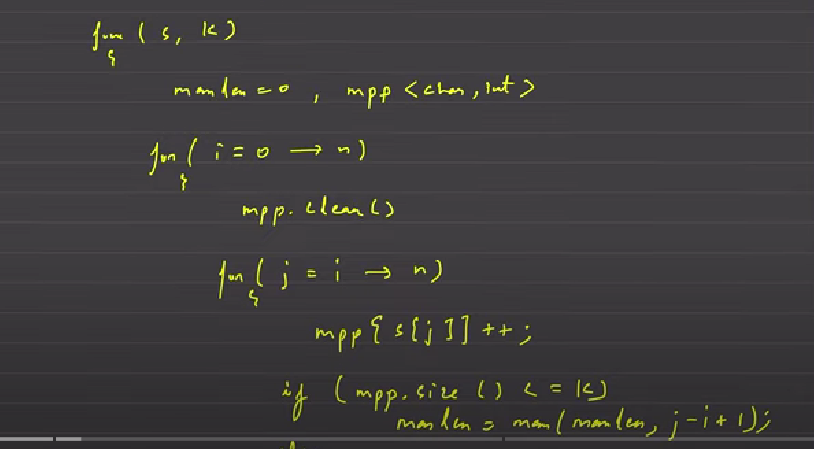 func ( s, k)
{
maxlen = 0 , mpp <char, int>
for ( i = 0 → n)
{
mpp. clear()
for ( j = i → n)
{
mpp[ s[j]] ++ ;
if ( mpp.size () <= k)
maxlen = max(maxlen, j-i+1);